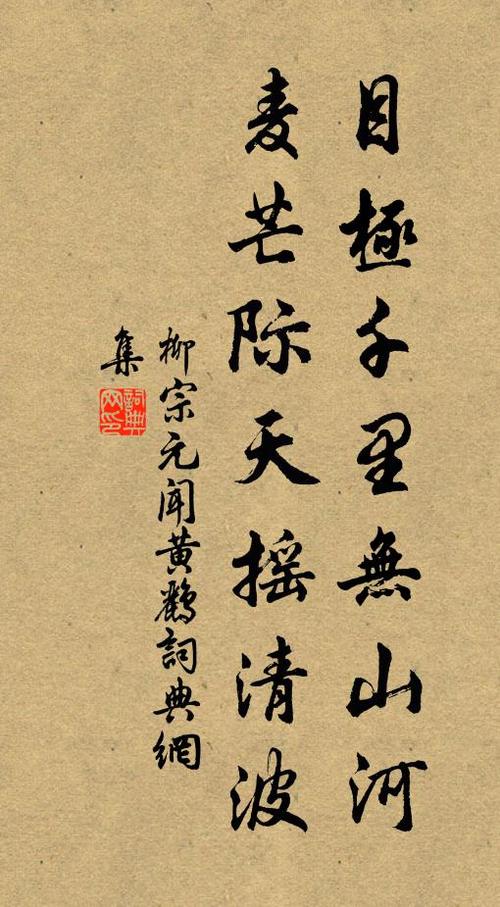 目極千里無山河
麦芒际天摇清波
柳宗元闻黄鸝詞典網
集
詞典
网印